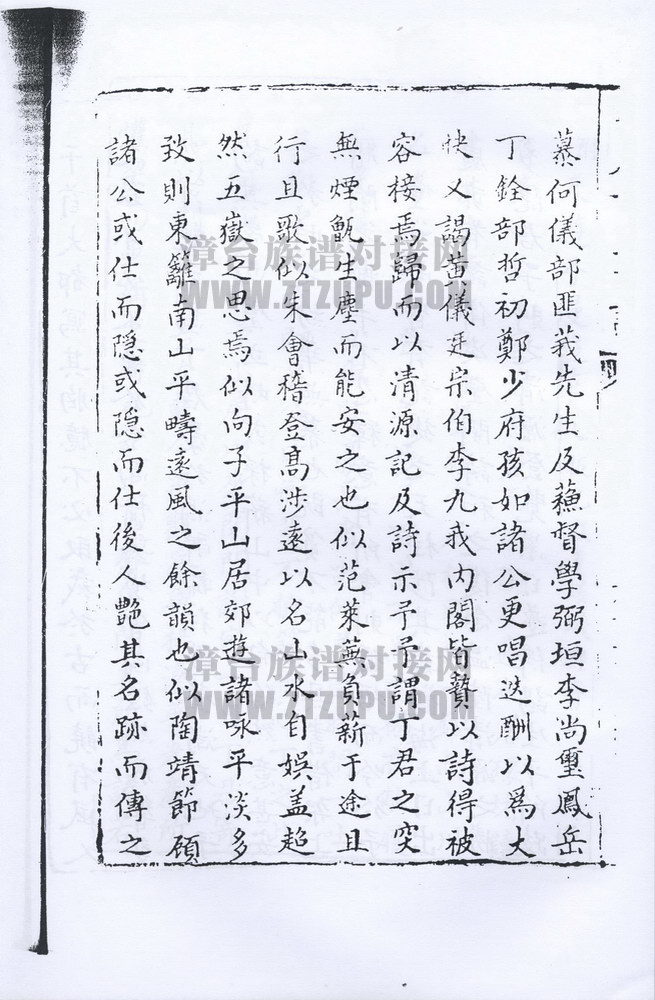 慕何儀部匪莪先生及蘓督學弼垣李尚璽鳳岳
丁銓部哲初鄭少府孩如諸公更唱迭酬以爲大
快又謁黄儀廷宗伯李九我内閣皆贄以詩得被
容接焉歸而以清源記及詩示予予謂丁君之突
無煙甑生塵而能安之也似范萊蕪負薪于途且
行且歌似朱會稽登髙涉遠以名山水自娱盖超
然五嶽之思焉似向子平山居郊遊諸咏平淡多
致則東籬南山平疇遠風之餘韻也似陶靖節顧
諸公或仕而隱或隐而仕後人艷其名跡而傳之
漳台族谱对接网
WWW.ZTZUPU.COM
漳台族谱对接网
WWW.ZTZUPU.COM